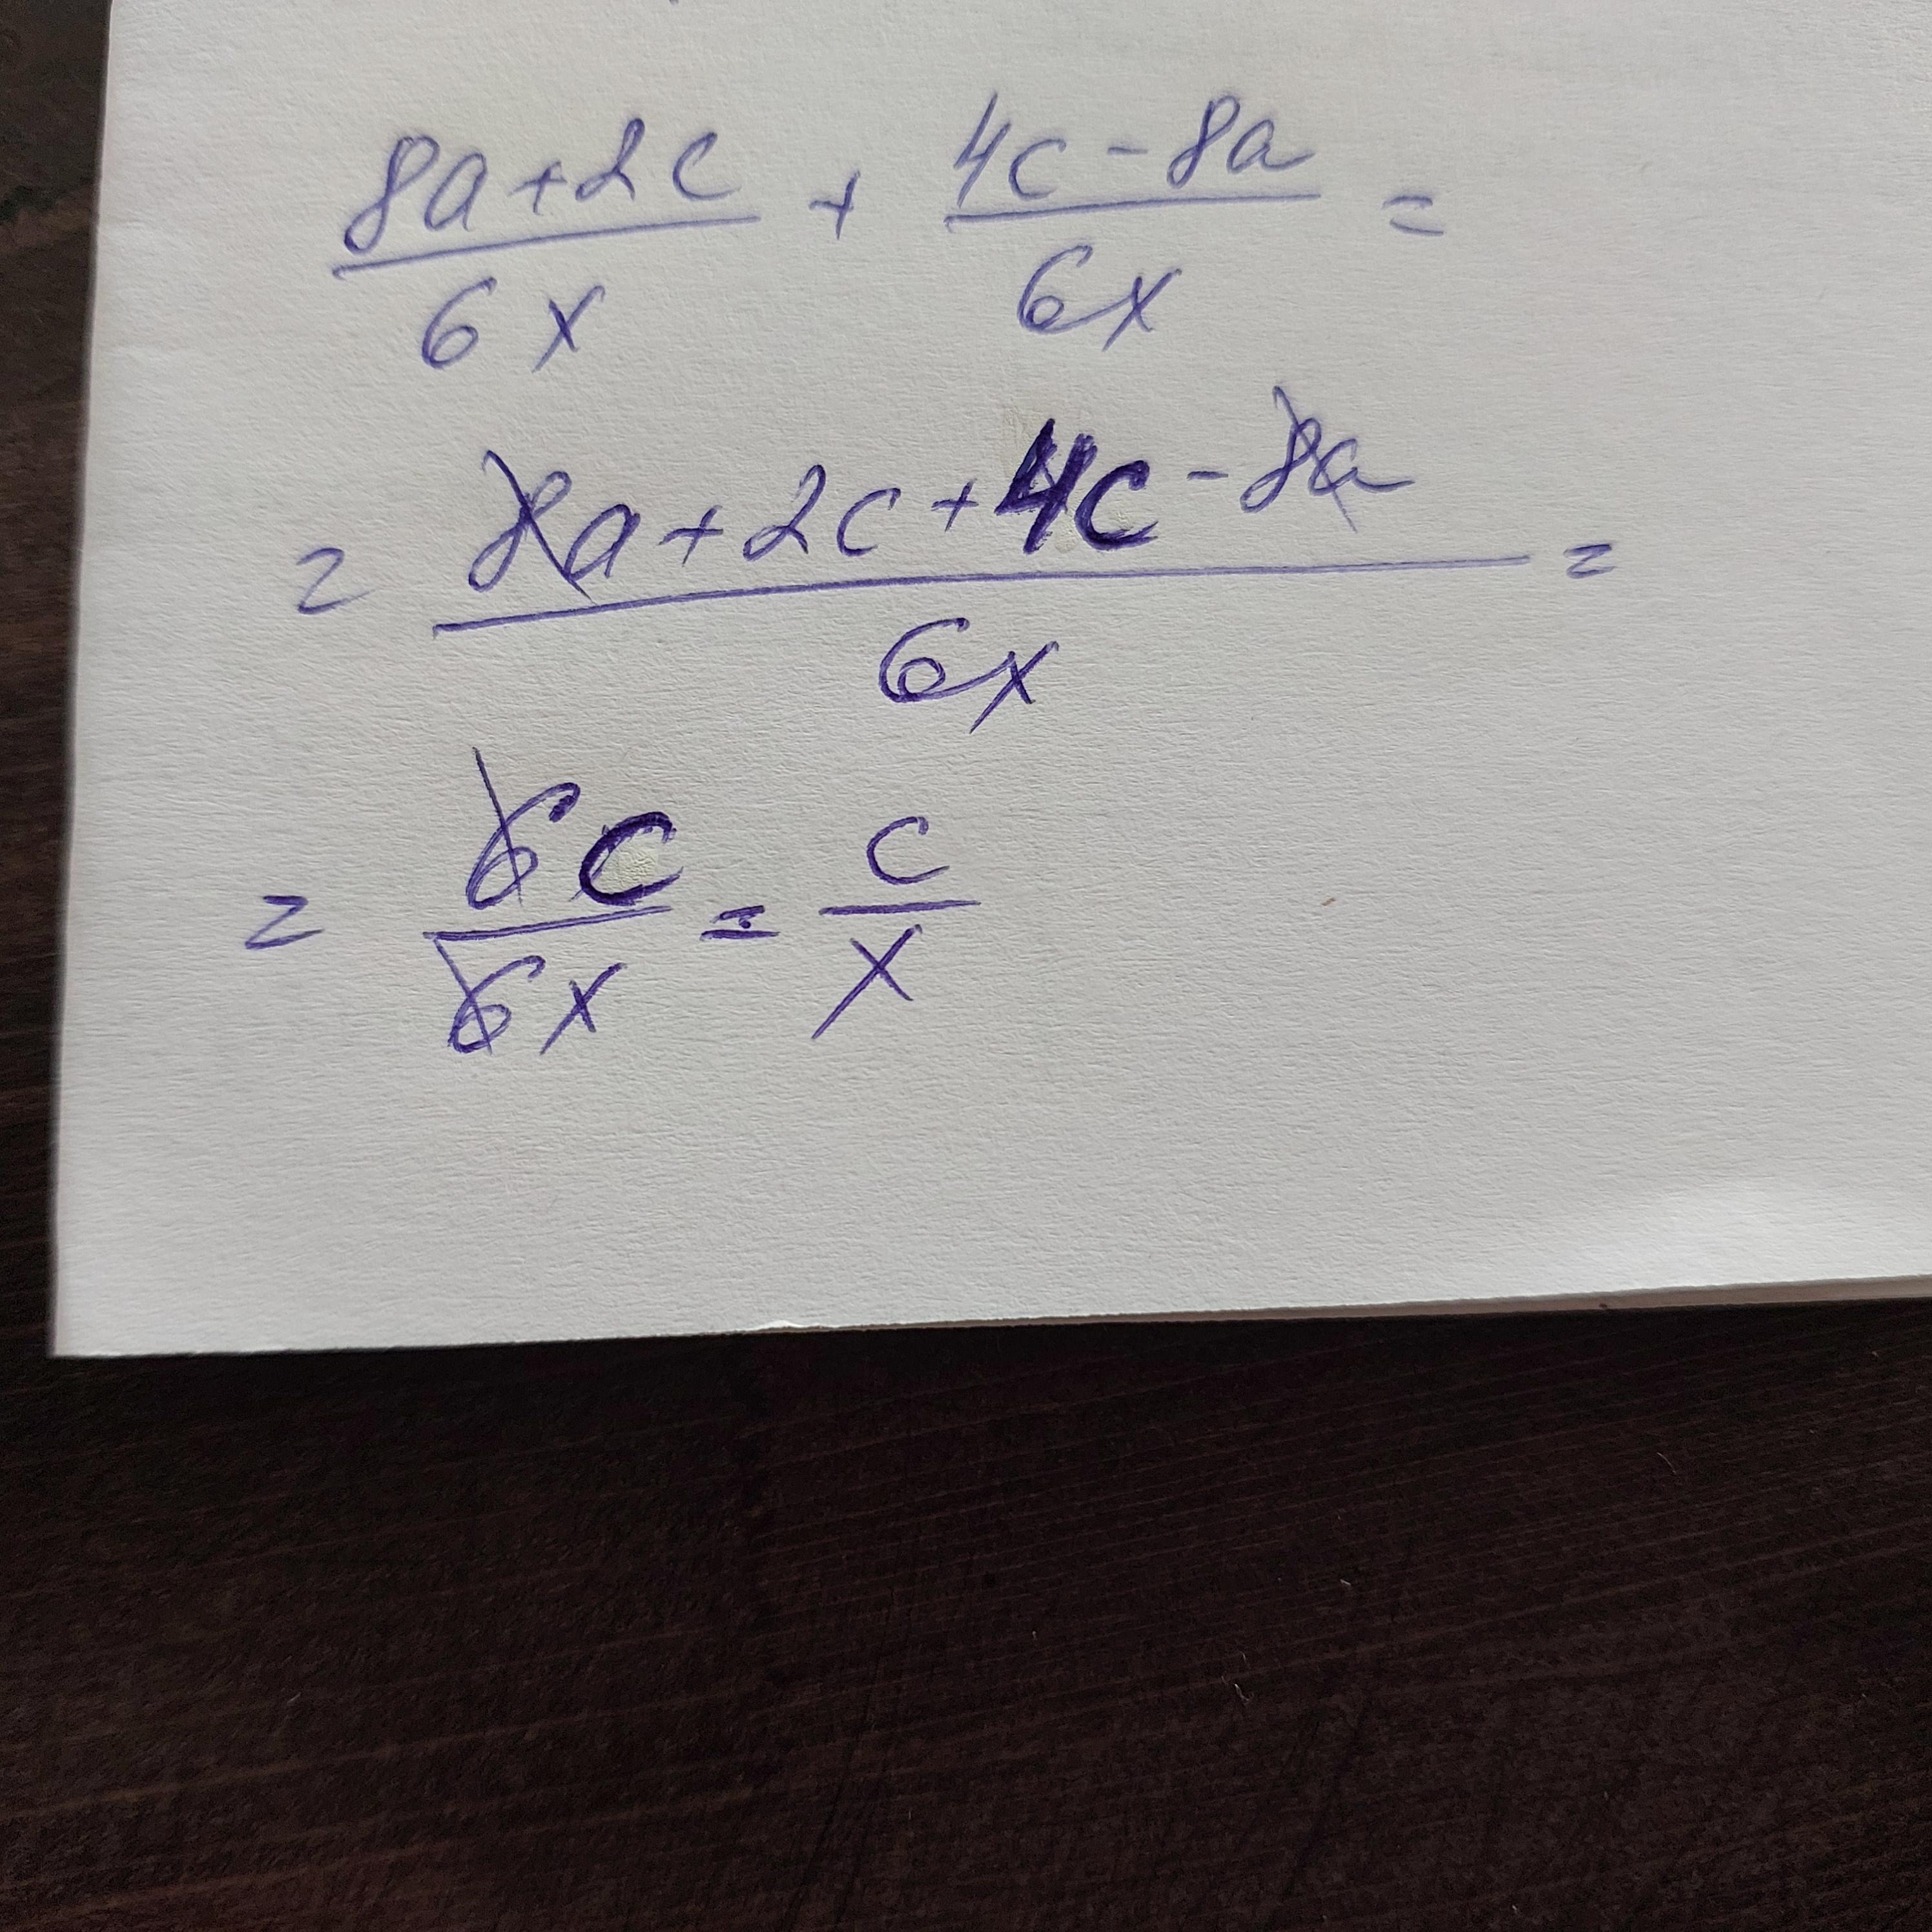 (8a+2c)/(6x) + (4c-8a)/(6x) =
= (8a+2c+4c-8a)/(6x) =
= (6c)/(6x) = c/x